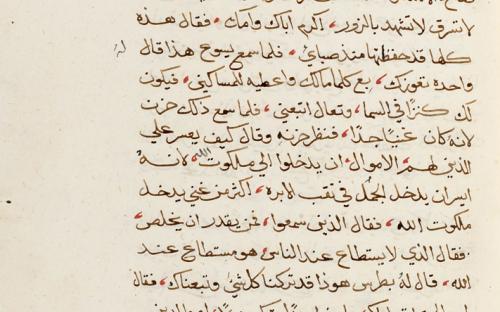 لا تسرق لا تشهد بالزور، اكرم اباك وامك، فقال هذه
كلها قد حفظتها منذ صباي، فلما سمع يسوع هذا قال له
واحده تعوزك، بع كلما مالك واعطيه للمساكين، فيكون
لك كنزًا في السما، وتعال اتبعني، فلما سمع ذلك حزن
لانه كان غنيًا جدًا، فنظر حزنه وقال كيف يعسر علي
الذين لهم الاموال، ان يدخلوا الي ملكوت الله، لانهُ
ايسر ان يدخل الجمل في ثقب الابره، اكثر من غني يدخل
ملكوت الله، فقال الذين سمعوا، فمن يقدر ان يخلص،
فقال الذي لا يستطاع عند الناس هو مستطاع عند
الله، قال لهُ بطرس هوذا قد تركنا كل شيٍ وتبعناك، فقال